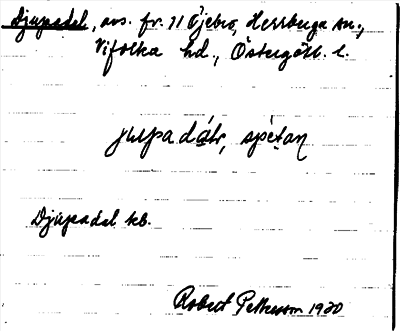 Djupadal, avs. fr. 71 Öjebro, Herrberga sn.,
Vifolka hd., Östergötl. l.
jupadálr, spétan
Djupadal kb.
Robert Petterson 1930